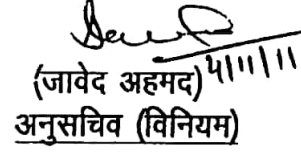 (जावेद अहमद) 4/11/11
अनुसचिव (विनियम)